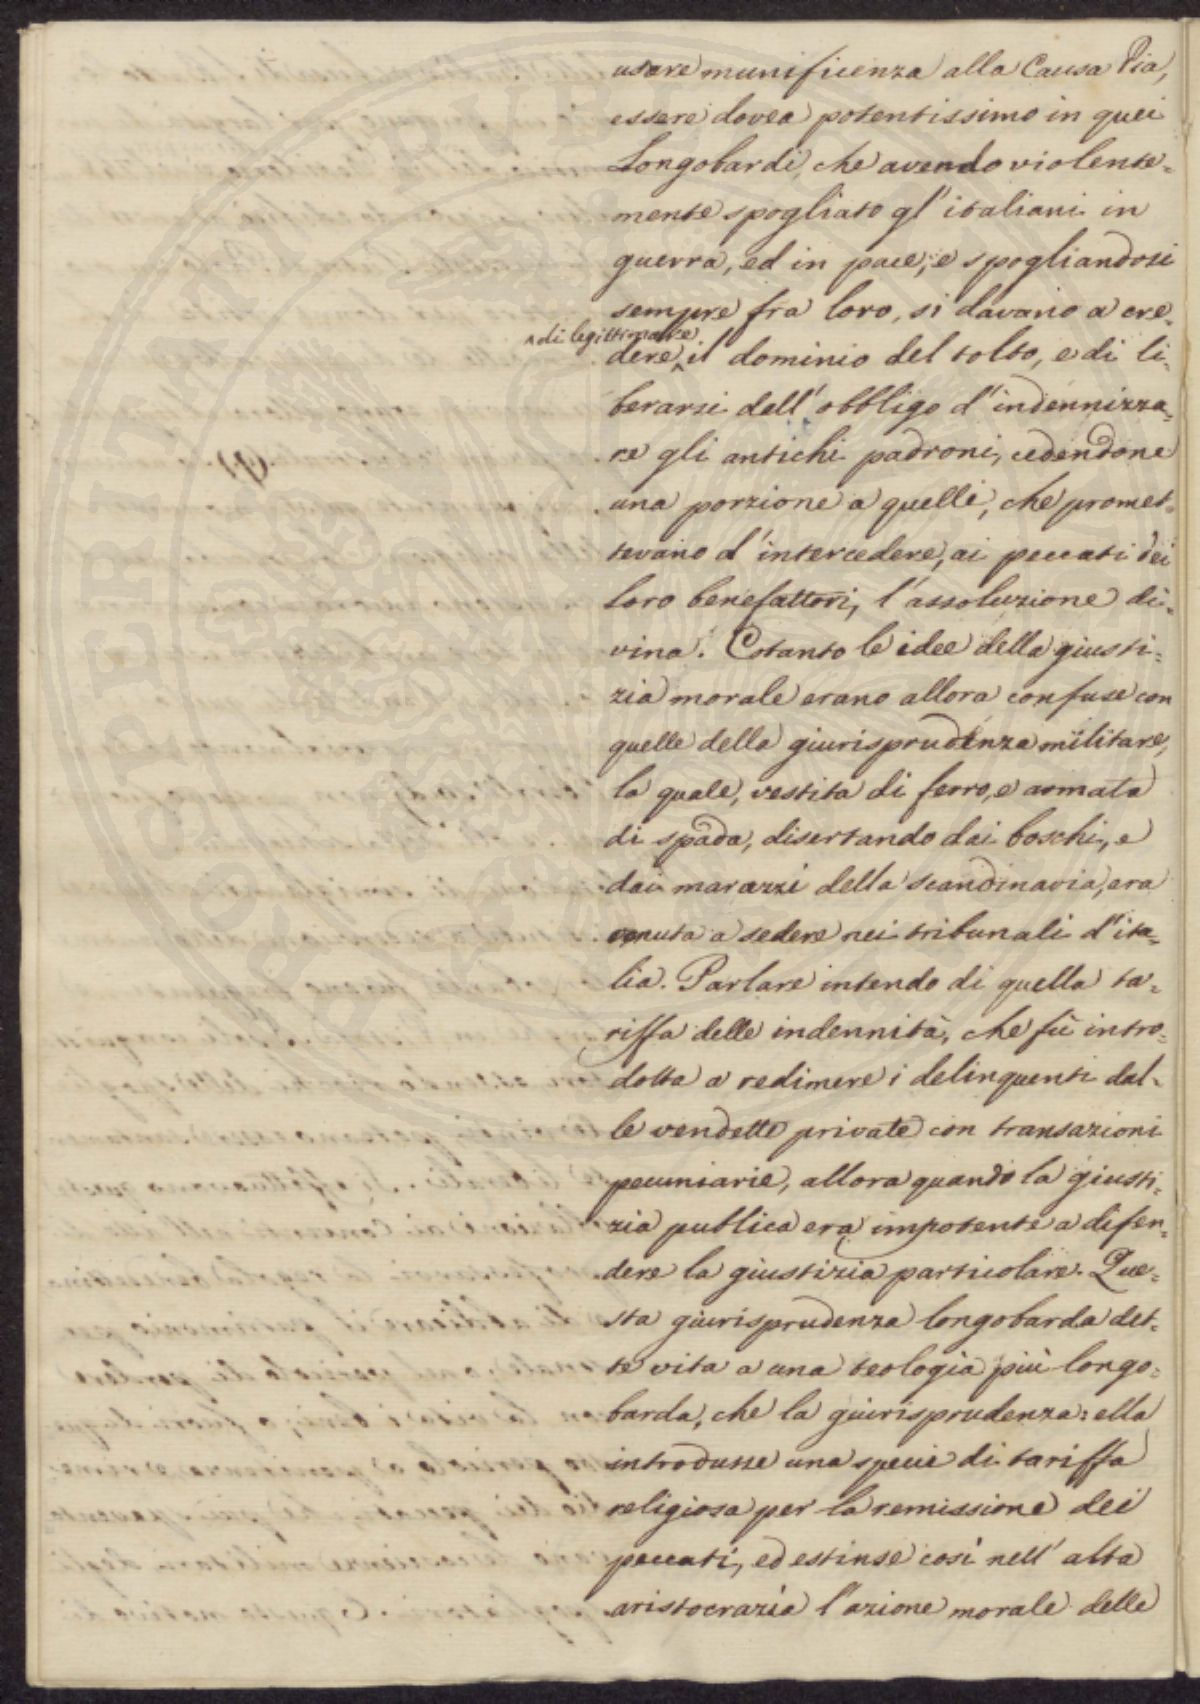 usare munificenza alla Causa Pia,
essere dovea potentissimo in quei
Longobardi, che avendo violente=
mente spogliato gl'italiani in
guerra, ed in pace, e spogliandosi
sempre fra loro, si davano a cre=
^di legittimare
dere ^ il dominio del tolto, e di li=
berarsi dell'obbligo d'indennizza=
re gli antichi padroni, cedendone
una porzione a quelli, che promet=
tevano d'intercedere, ai peccati dei
loro benefattori, l'assoluzione di=
vina. Cotanto le idee della giusti=
zia morale erano allora confuse con
quelle della giurisprudenza militare,
la quale, vestita di ferro, e armata
di spada, disertando dai boschi, e
dai marazzi della scandinavia, era
venuta a sedere nei tribunali d'ita=
lia. Parlare intendo di quella ta=
riffa delle indennità, che fù intro=
dotta a redimere i delinquenti dal=
le vendette private con transazioni
pecuniarie, allora quando la giusti=
zia publica era impotente a difen=
dere la giustizia particolare. Que=
sta giurisprudenza longobarda det=
te vita a una teologia più longo=
barda, che la giurisprudenza: ella
introdusse una specie di tariffa
religiosa per la remissione dei
peccati, ed estinse così nell'alta
aristocrazia l'azione morale delle